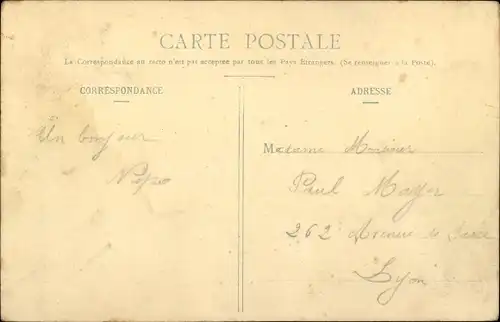 CARTE POSTALE
La Correspondance au recto n'est pas acceptée par tous les Pays Etrangers. (Se renseigner à la Poste).
CORRESPONDANCE
ADRESSE
Un bonjour
Madame
Paul Mayer
262 Avenue de Saxe
Lyon